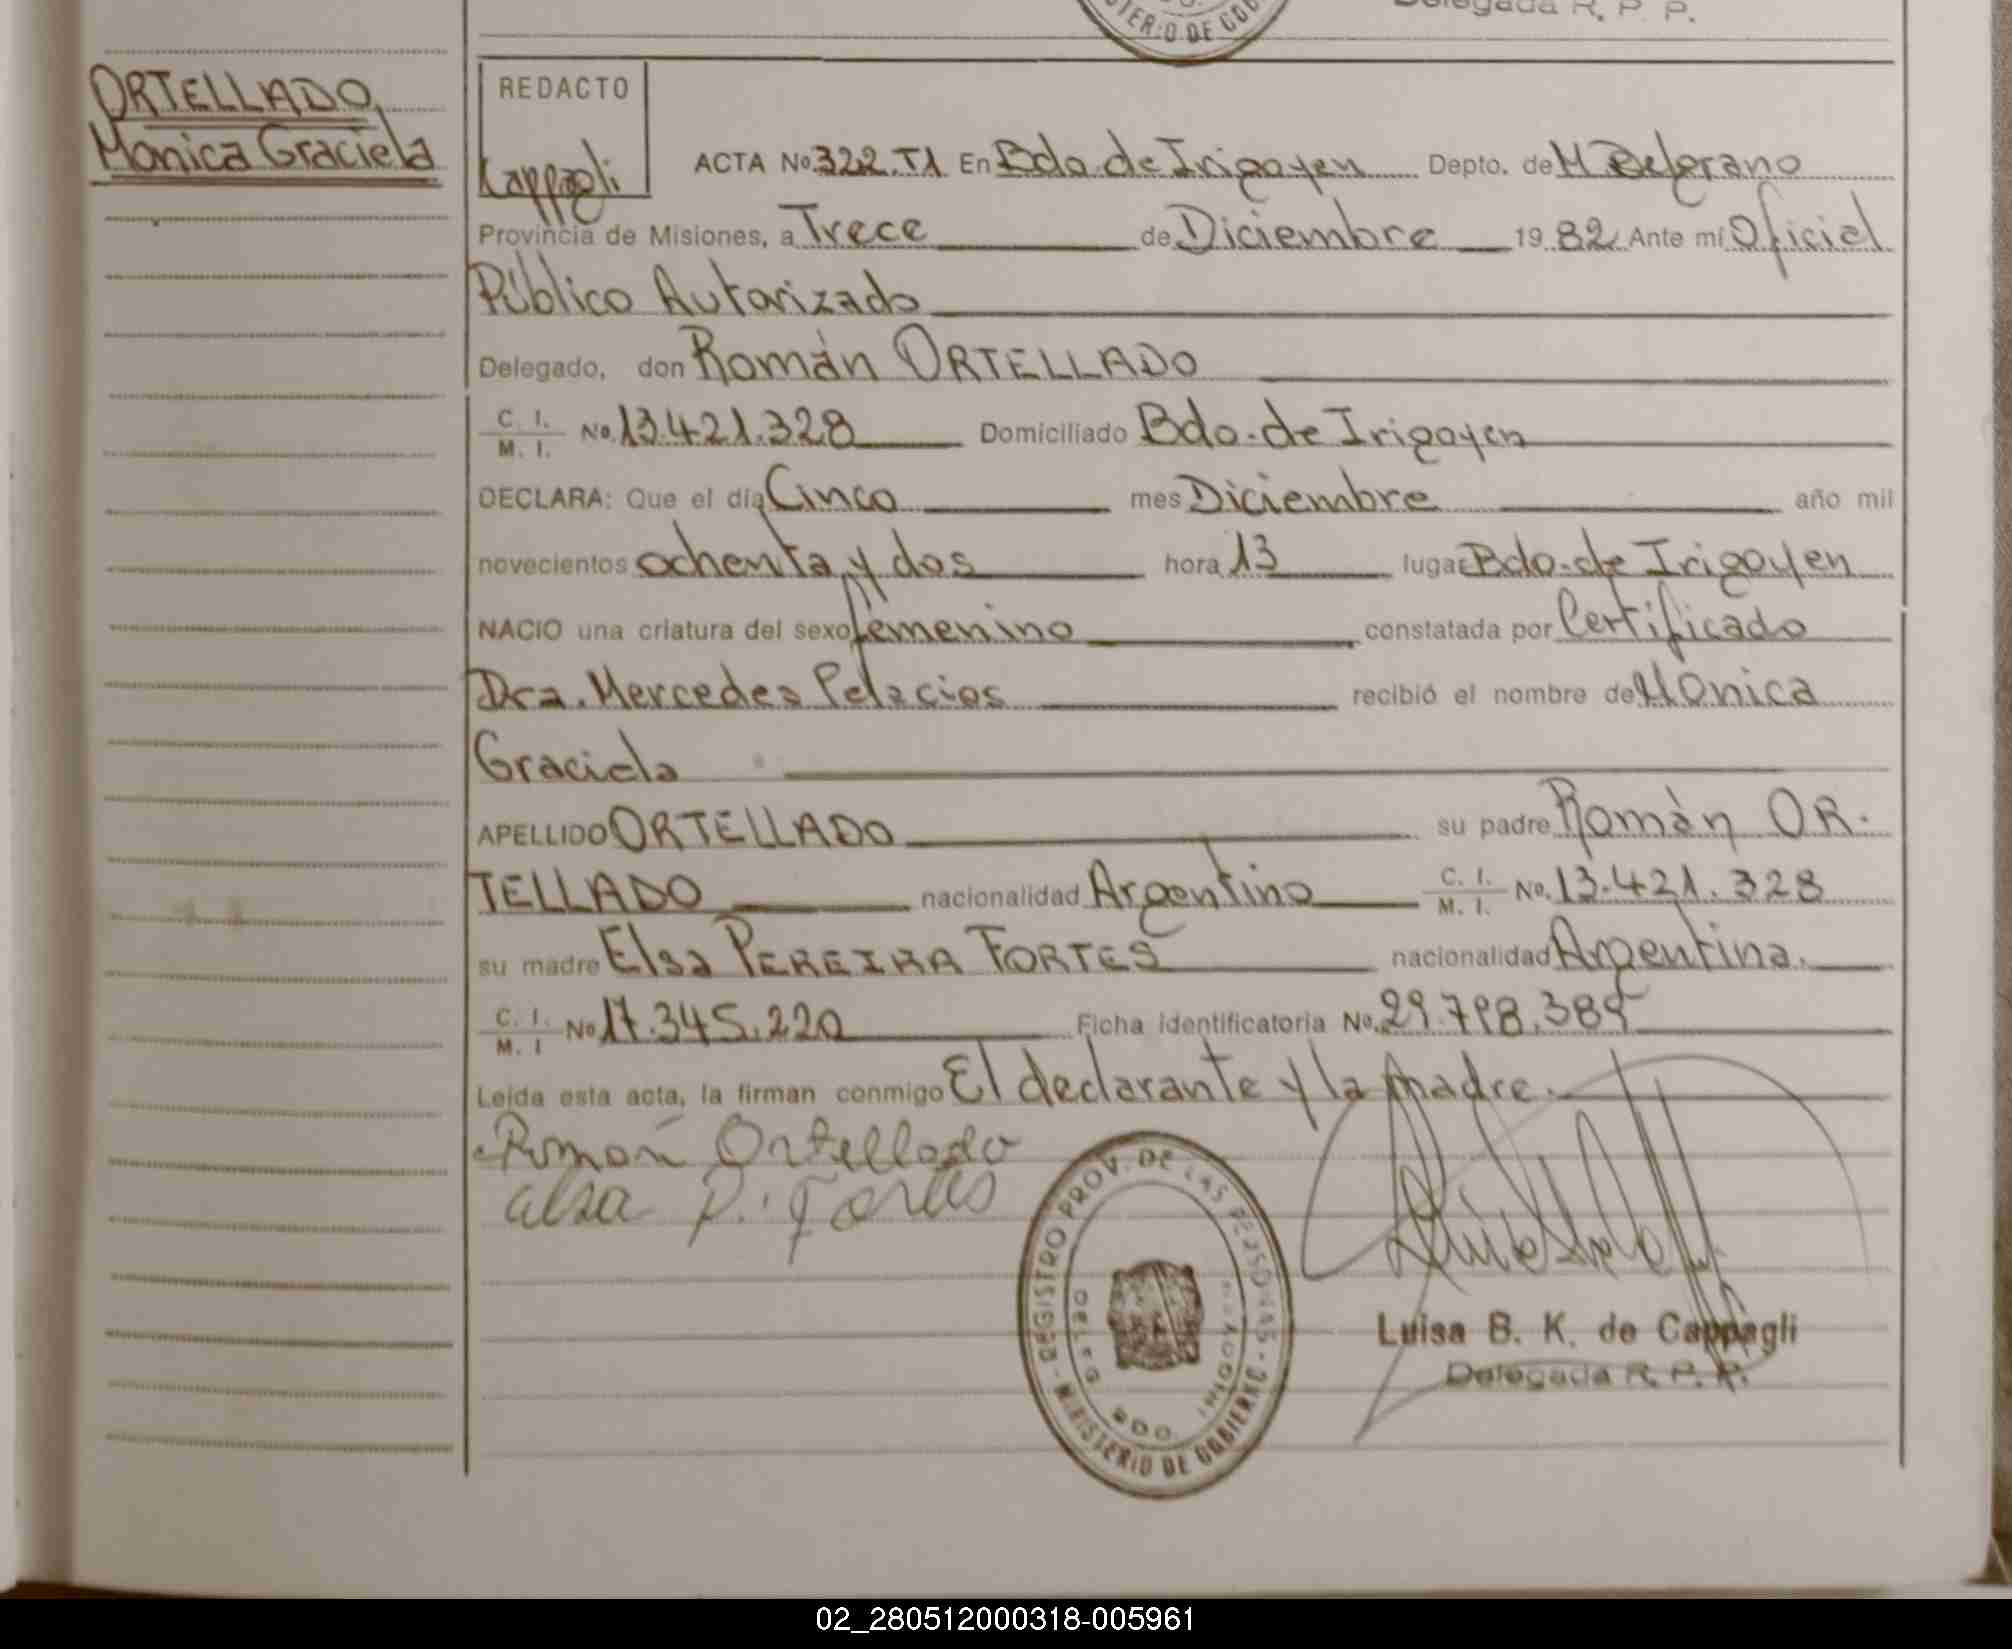 Delegada R. P. P.
MINISTERIO DE GOB
ORTELLADO,
Monica Graciela
REDACTO
Cappagli
ACTA No. 322.T1 En Bdo. de Irigoyen Depto. de M Belgrano
Provincia de Misiones, a Trece de Diciembre 1982 Ante mí Oficial
Público Autorizado
Delegado, don Román ORTELLADO
C. I. / M. I. No. 13.421.328 Domiciliado Bdo. de Irigoyen
DECLARA: Que el día Cinco mes Diciembre año mil
novecientos ochenta y dos hora 13 lugar Bdo. de Irigoyen
NACIO una criatura del sexo femenino constatada por Certificado
Dra. Mercedes Pelacios recibió el nombre de Monica
Graciela
APELLIDO ORTELLADO su padre Román OR.
TELLADO nacionalidad Argentino C. I. / M. I. No. 13.421.328
su madre Elsa PEREIRA FORTES nacionalidad Argentina.
C. I. / M. I No 17.345.220 Ficha identificatoria No. 29.798.389
Leída esta acta, la firman conmigo El declarante y la madre.
Román Ortellado
elsa P. Fortes
REGISTRO PROV. DE LAS PERSONAS - MINISTERIO DE GOBIERNO
DELEG
BDO.
Luisa B. K. de Cappagli
Delegada R. P. P.
02_280512000318-005961